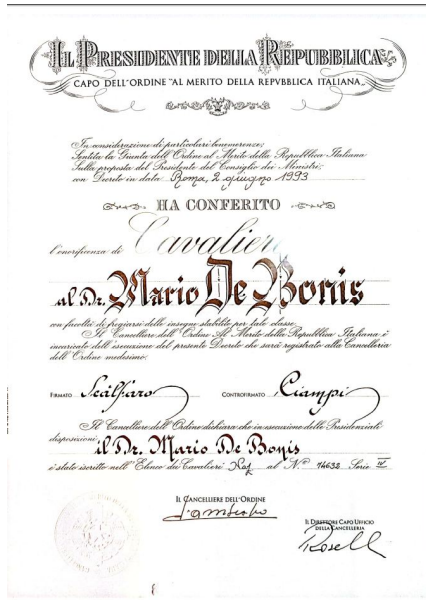 IL PRESIDENTE DELLA REPUBBLICA
CAPO DELL'ORDINE "AL MERITO DELLA REPVBBLICA ITALIANA"
In considerazione di particolari benemerenze;
Sentita la Giunta dell'Ordine al Merito della Repubblica Italiana
Sulla proposta del Presidente del Consiglio dei Ministri;
con Decreto in data Roma, 2 giugno 1993
HA CONFERITO
l'onorificenza di Cavaliere
al Dr. Mario De Bonis
con facoltà di fregiarsi delle insegne stabilite per tale classe.
Il Cancelliere dell'Ordine Al Merito della Repubblica Italiana è
incaricato dell'esecuzione del presente Decreto che sarà registrato alla Cancelleria
dell'Ordine medesimo.
FIRMATO Scalfaro CONTROFIRMATO Ciampi
Il Cancelliere dell'Ordine dichiara che in esecuzione delle Presidenziali
disposizioni il Dr. Mario De Bonis
è stato iscritto nell'Elenco dei Cavalieri Naz. al N.º 74632 Serie IV
IL CANCELLIERE DELL'ORDINE
IL DIRETTORE CAPO UFFICIO
DELLA CANCELLERIA